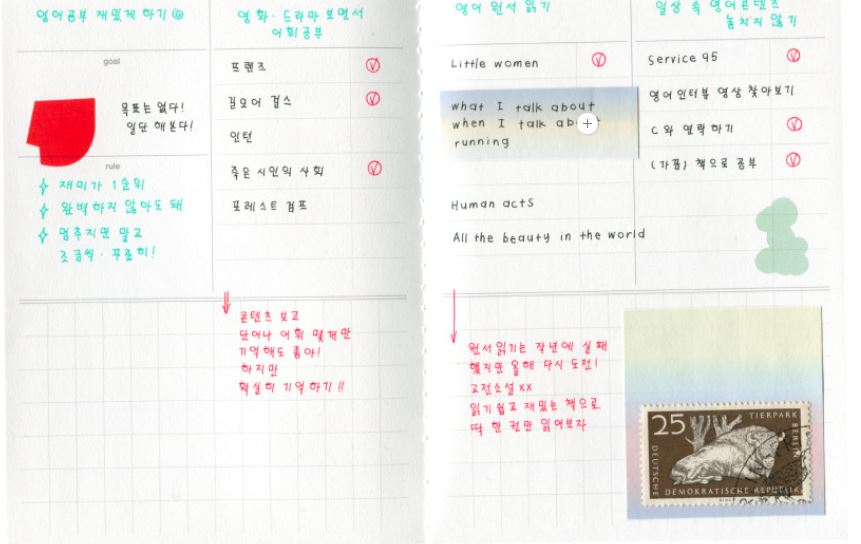 영어공부 재밌게 하기
goal
목표는 없다!
일단 해본다!
rule
재미가 1순위
완벽하지 않아도 돼
멈추지만 말고
조금씩·꾸준히!
영화·드라마 보면서
어휘공부
프렌즈
길모어 걸스
인턴
죽은 시인의 사회
포레스트 검프
콘텐츠 보고
단어나 어휘 몇개만
기억해도 좋아!
하지만
확실히 기억하기!!
영어 원서 읽기
Little women
what I talk about
when I talk about
running
Human acts
All the beauty in the world
원서읽기는 작년에 실패
했지만 올해 다시 도전!
고전소설 xx
읽기 쉽고 재밌는 책으로
딱 한 권만 읽어보자
일상 속 영어콘텐츠
놓치지 않기
Service 95
영어인터뷰 영상 찾아보기
C와 연락하기
(가끔) 책으로 공부
25
TIERPARK
BERLIN
DEUTSCHE
DEMOKRATISCHE REPUBLIK